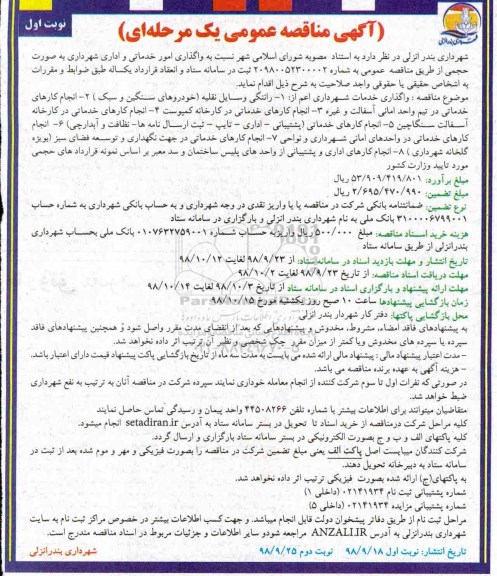 نوبت اول
(آگهی مناقصه عمومی یک مرحله‌ای)
شهرداری بندر انزلی در نظر دارد به استناد مصوبه شورای اسلامی شهر نسبت به واگذاری امور خدماتی و اداری شهرداری به صورت
حجمی از طریق مناقصه عمومی به شماره ۲۰۹۸۰۰۵۲۳۰۰۰۰۲ ثبت در سامانه ستاد و انعقاد قرارداد یکساله طبق ضوابط و مقررات
به اشخاص حقیقی یا حقوقی واجد صلاحیت به شرح ذیل اقدام نماید.
موضوع مناقصه : واگذاری خدمات شهرداری اعم از: ۱- رانندگی وسایل نقلیه (خودروهای سنگین و سبک ) ۲- انجام کارهای
خدماتی در تیم واحد امانی آسفالت و غیره ۳- انجام کارهای خدماتی در کارخانه کمپوست ۴- انجام کارهای خدماتی در کارخانه
آسفالت سنگاچین ۵- انجام کارهای خدماتی (پشتیبانی - اداری - تایپ - ثبت ارسال نامه ها- نظافت و آبدارچی) ۶- انجام
کارهای خدماتی در واحدهای امانی شهرداری و نواحی ۷- انجام کارهای خدماتی در جهت نگهداری و توسعه فضای سبز (بویژه
گلخانه شهرداری ) ۸- انجام کارهای اداری و پشتیبانی از واحد های پلیس ساختمان و سد معبر بر اساس نمونه قرارداد های حجمی
مورد تایید وزارت کشور
مبلغ برآورد: ۵۳/۹۰۹/۴۱۹/۸۰۱ ریال
مبلغ تضمین: ۲/۶۹۵/۴۷۰/۹۹۰ ریال
نوع تضمین: ضمانتنامه بانکی شرکت در مناقصه یا یا واریز نقدی در وجه شهرداری و به حساب بانکی شهرداری به شماره حساب
۳۱۰۰۰۰۶۷۹۹۰۰۱ بانک ملی به نام شهرداری بندر انزلی و بارگزاری در سامانه ستاد
هزینه خرید اسناد مناقصه: مبلغ ۵۰۰/۰۰۰ ریال واریزبه حساب شماره ۰۱۰۷۶۳۲۷۵۹۰۰۱ بانک ملی بحساب شهرداری
بندرانزلی از طریق سامانه ستاد
تاریخ انتشار و مهلت بازدید اسناد در سامانه ستاد: از ۹۸/۹/۲۳ لغایت ۹۸/۱۰/۱۲
مهلت دریافت اسناد مناقصه: از تاریخ ۹۸/۹/۲۳ لغایت ۹۸/۱۰/۲
مهلت ارائه پیشنهاد و بارگزاری اسناد در سامانه ستاد از تاریخ ۹۸/۱۰/۳ لغایت ۹۸/۱۰/۱۴
زمان بازگشایی پیشنهادها ساعت ۱۰ صبح روز یکشنبه مورخ ۹۸/۱۰/۱۵
محل بازگشایی پاکتها: دفتر کار شهردار بندر انزلی
به پیشنهادهای فاقد امضاء، مشروط، مخدوش و پیشنهادهایی که بعد از انقضای مدت مقرر واصل شود و همچنین پیشنهادهای فاقد
سپرده یا سپرده های مخدوش ویاکمتر از میزان مقرر چک شخصی و نظیر آن ترتیب اثر داده نخواهد شد.
-مدت اعتبار پیشنهاد مالی : پیشنهاد مالی ارائه شده می بایست به مدت سه ماه از تاریخ بازگشایی پاکت پیشنهاد قیمت دارای اعتبار باشد.
- هزینه آگهی به عهده برنده مناقصه می باشد.
در صورتی که نفرات اول تا سوم شرکت کننده از انجام معامله خودداری نمایند سپرده شرکت در مناقصه آنان به ترتیب به نفع شهرداری
ضبط خواهد شد.
متقاضیان میتوانند برای اطلاعات بیشتر با شماره تلفن ۴۴۵۰۸۲۶۶ واحد پیمان و رسیدگی تماس حاصل نمایند
کلیه مراحل شرکت درمناقصه از خرید اسناد تا تحویل در بستر سامانه ستاد به آدرس setadiran.ir انجام میشود.
کلیه پاکتهای الف و ب و ج بصورت الکترونیکی در بستر سامانه ستاد بارگزاری و ارسال گردد.
شرکت کنندگان میبایست اصل پاکت الف یعنی مبلغ تضمین شرکت در مناقصه را بصورت فیزیکی و مهر و موم شده بعد از ثبت در
سامانه ستاد به دبیرخانه تحویل دهند.
به پاکتهای(ج) ارائه شده بصورت فیزیکی ترتیب اثر داده نخواهد شد.
شماره پشتیبانی ثبت نام ۰۲۱۴۱۹۳۴ (داخلی ۱)
شماره پشتیبانی مزایده ۰۲۱۴۱۹۳۴ (داخلی ۵)
مراحل ثبت نام از طریق دفاتر پیشخوان دولت قابل انجام میباشد. و جهت کسب اطلاعات بیشتر در خصوص مراکز ثبت نام به سایت
شهرداری بندرانزلی به آدرس ANZALI.IR مراجعه شودو سایر اطلاعات و جزئیات مربوط در اسناد مناقصه مندرج است.
تاریخ انتشار: نوبت اول ۹۸/۹/۱۸ نوبت دوم ۹۸/۹/۲۵
شهرداری بندرانزلی